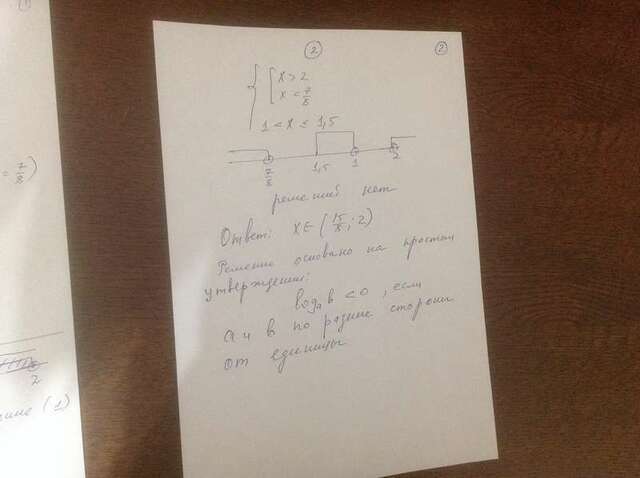 ② ②
x > 2
x < 7/8
1 < x ≤ 1,5
7/8 1,5 1 2
решений нет
Ответ: x ∈ (15/8; 2)
Решение основано на простом
утверждении:
log_a b < 0, если
a и b по разные стороны
от единицы
= 7/8)
2
(1)